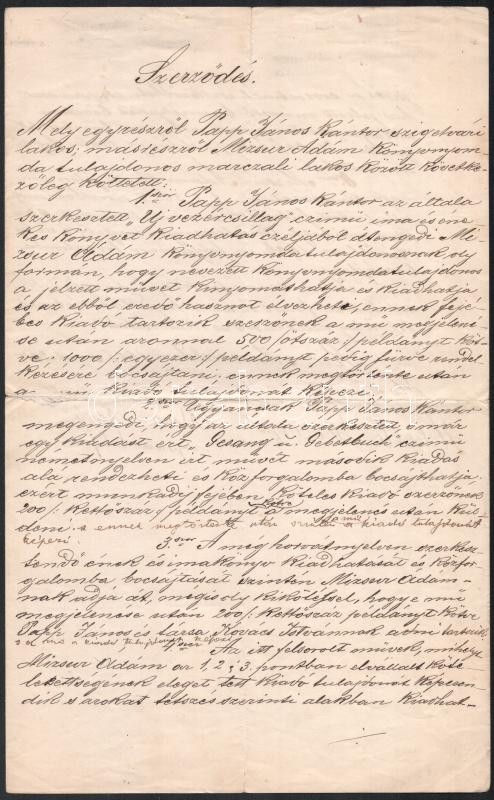 Szerződés.
Mely egyrészről Papp János Kántor szigetvári
lakos; másrészről Mizsur Ádám Könyvnyom-
da tulajdonos marczali lakos között követke-
zőleg köttetett:
1. ször Papp János Kántor az általa
szerkesztett „Uj vezércsillag" czimű ima és éne
kes könyvet kiadhatás czéljából átengedi Mi-
zsur Ádám könyvnyomdatulajdonosnak, oly
formán, hogy nevezett könyvnyomdatulajdonos
a jelzett művet kinyomathatja és kiadhatja
és az ebből eredő hasznot élvezheti, ennek fejé-
ben kiadó tartozik szerzőnek a mű megjelené-
se után azonnal 500 /:ötszáz:/ példányt köt-
ve; 1000 /:egyezer:/ példányt pedig fűzve rendel
kezésére bocsájtani; ennek megtörténte után
a mű Kiadó tulajdonát képezi.
2. szor Ugyancsak Papp János Kántor
megengedi, hogy az általa szerkesztett s már
egy kiadást ért „Gesang u. Gebetbuch" czimű
német nyelven írt művét második kiadás
alá rendezheti és közforgalomba bocsájthatja
ezért munkadij fejében köteles kiadó szerzőnek
kötve
200 /:Kettőszáz:/ példányt a megjelenés után kül-
deni. s ennek megtörténte után ezen mű a kiadó tulajdonát
képezi.
3. szor A még horvát nyelven szerkesz-
tendő ének és imakönyv kiadhatását és közfor-
galomba bocsájtását szintén Mizsur Ádám-
nak adja át, mégis oly kikötéssel, hogy e mű
megjelenése után 200 /:Kettőszáz:/ példányt kötve
Papp János és társa Kovács Istvánnak adni tartozik,
s a mű a kiadó tulajdonát képezi.
4. szer Az itt felsorolt művek, mihelyt
Mizsur Ádám az 1. 2. s 3. pontban elvállalt köte
lezettségének eleget tett kiadó tulajdonát képezen-
dik s azokat tetszés szerinti alakban kiadhat-